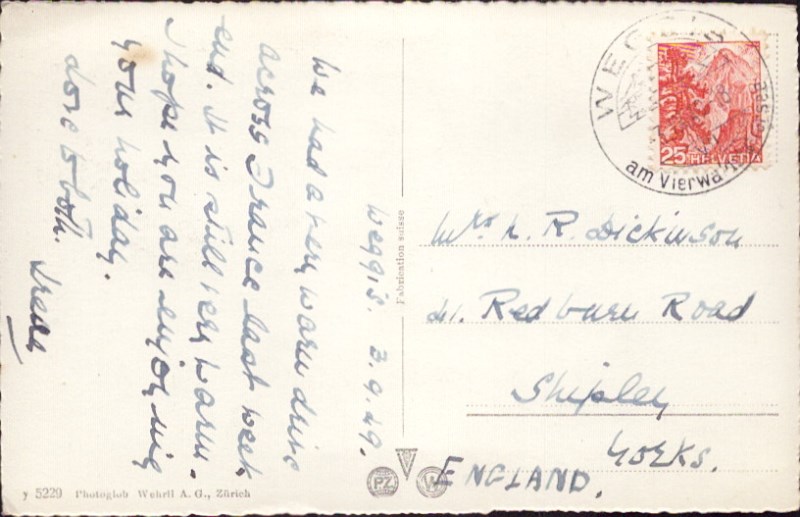 Weggis. 3.9.49.
We had a very warm drive
across France last week
end. It is still very warm.
I hope you are enjoying
your holiday.
love to both. Irene
Fabrication suisse
y 5229 Photoglob Wehrli A. G., Zürich
PZ
W
WEGGIS
am Vierwa
25 HELVETIA
Mrs L. R. Dickinson
Redburn Road
Shipley
Yorks.
ENGLAND.